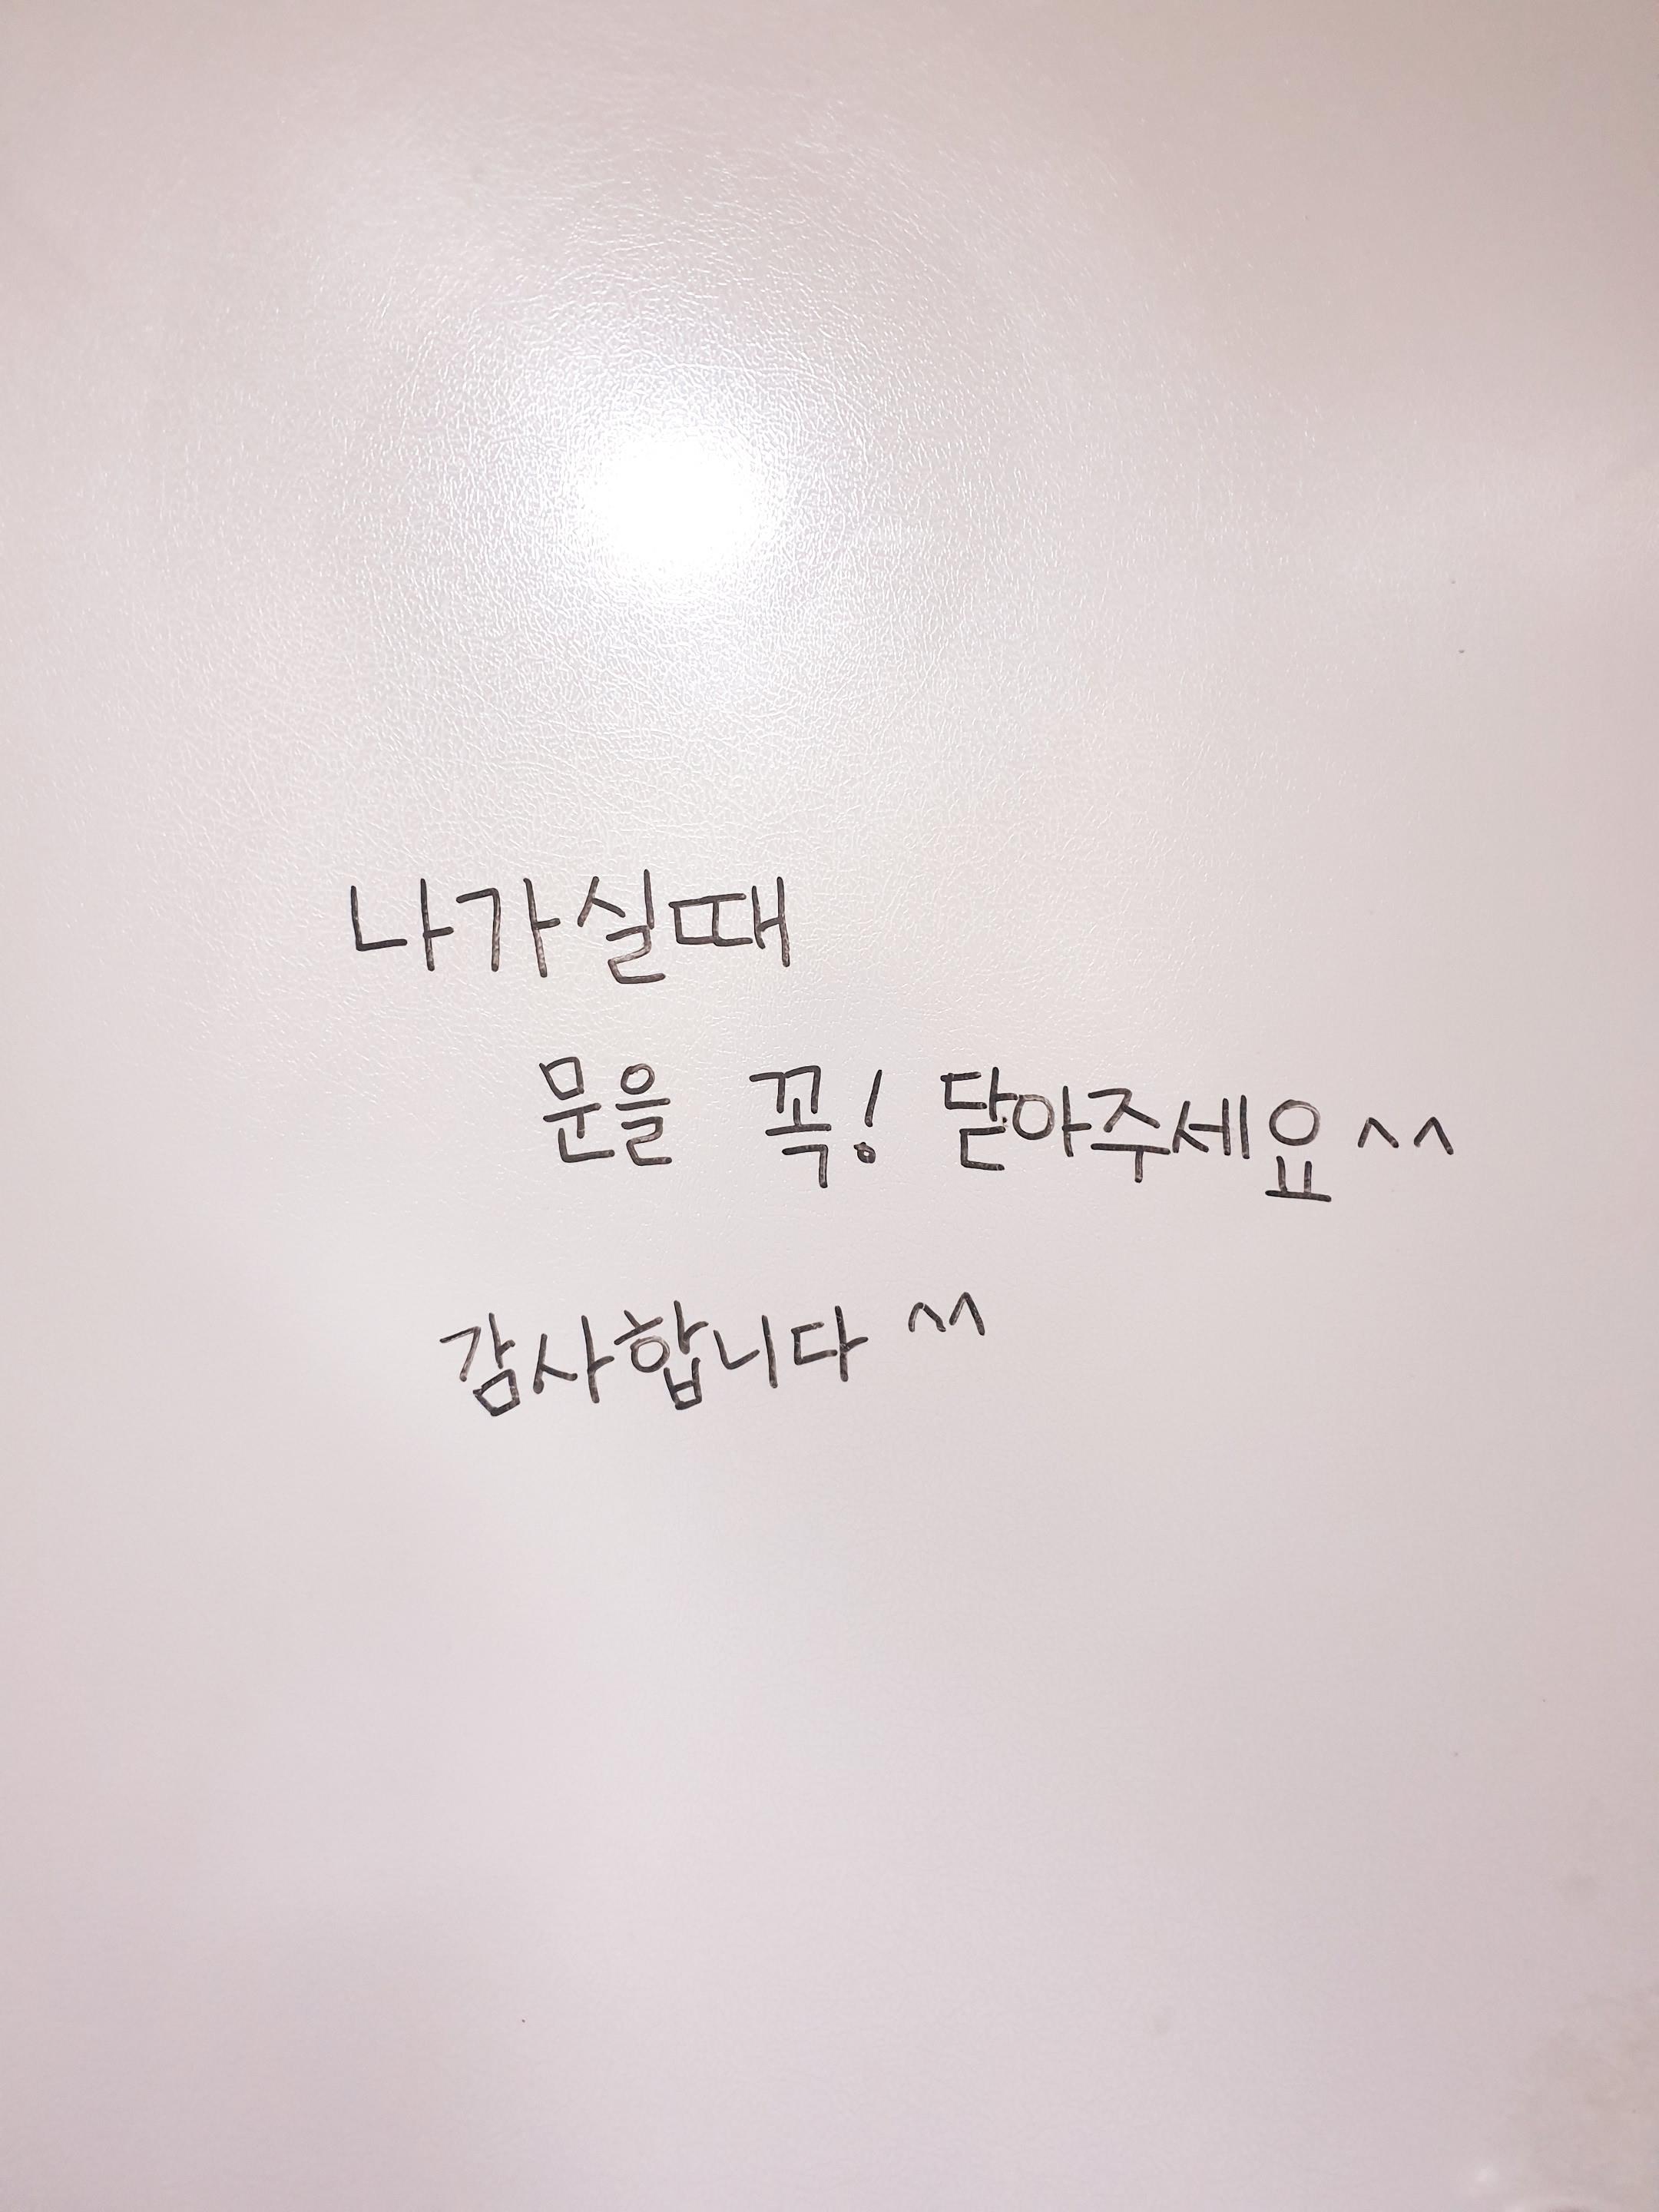 나가실때
문을 꼭! 닫아주세요 ^^
감사합니다 ^^